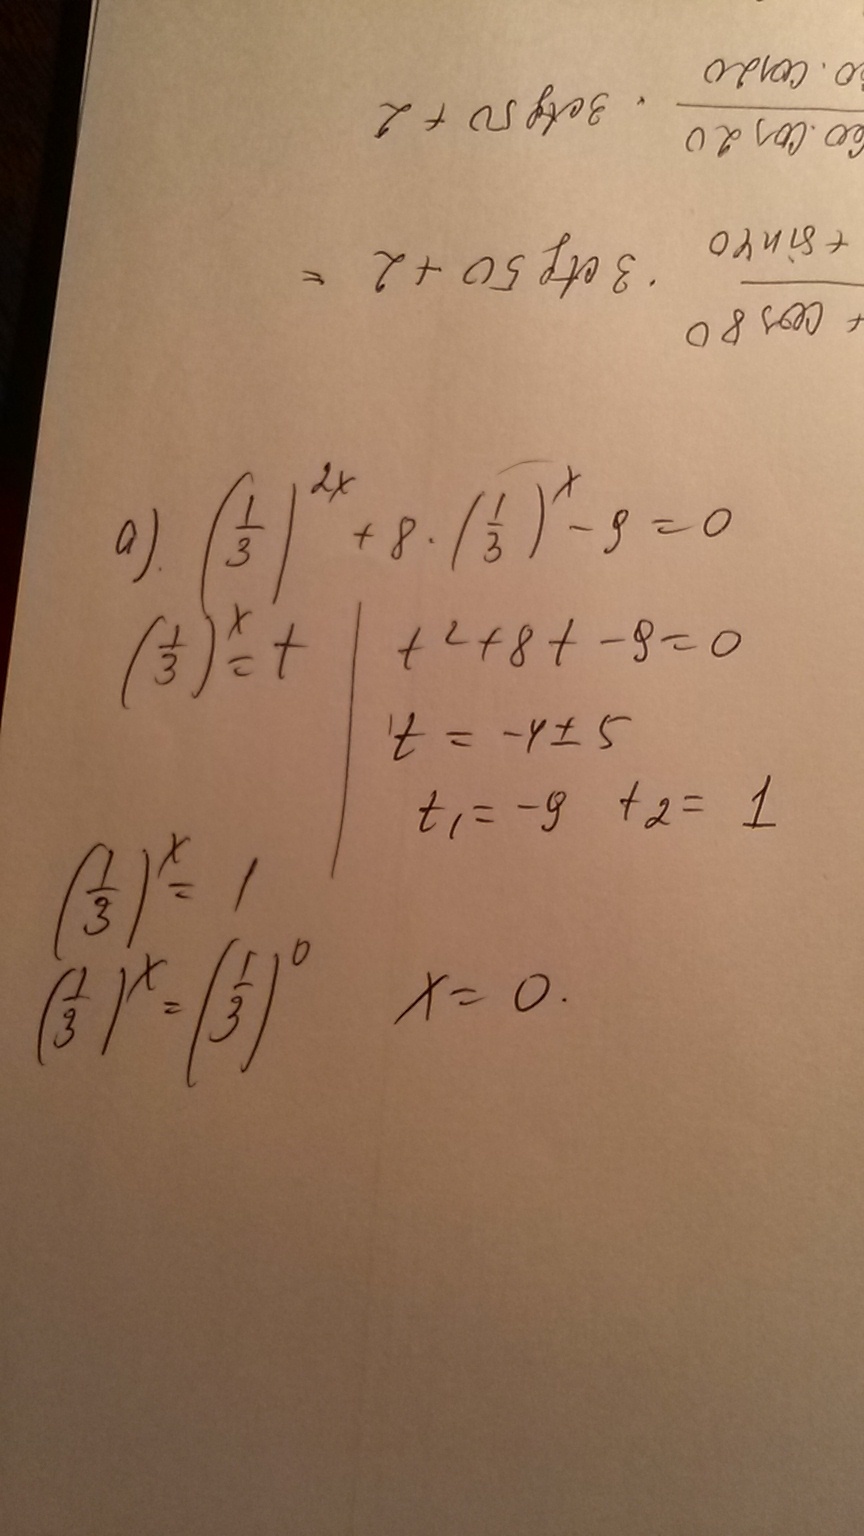 + cos 80 / + sin 40 · 3 ctg 50 + 2 =
cos 20 / · cos 20 · 3 ctg 50 + 2
а). (1/3)^2x + 8 · (1/3)^x - 9 = 0
(1/3)^x = t | t^2 + 8t - 9 = 0
t = -4 ± 5
t1 = -9 t2 = 1
(1/3)^x = 1
(1/3)^x = (1/3)^0 x = 0.